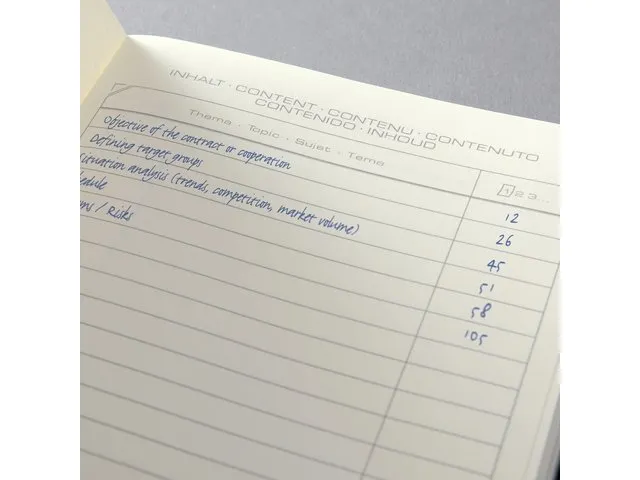 INHALT · CONTENT · CONTENU · CONTENUTO
CONTENIDO · INHOUD
Thema · Topic · Sujet · Tema 1 2 3...
Objective of the contract or cooperation 12
Defining target groups 26
Situation analysis (trends, competition, market volume) 45
edule 51
ms / Risks 58
105